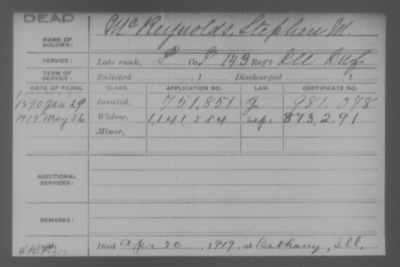 DEAD
NAME OF SOLDIER: McReynolds, Stephen M.
SERVICE: Late rank, P Co. I 143 Reg't Ill Inf.
TERM OF SERVICE: Enlisted , 1 Discharged , 1
DATE OF FILING. CLASS. APPLICATION NO. LAW. CERTIFICATE NO.
1890 Jan 29 Invalid, 751,851 g. 981,078
1919 May 26 Widow, 1,141,584 873,291
Minor,
ADDITIONAL SERVICES:
REMARKS:
Died Apr 20, 1919, at Bethany, Ill.